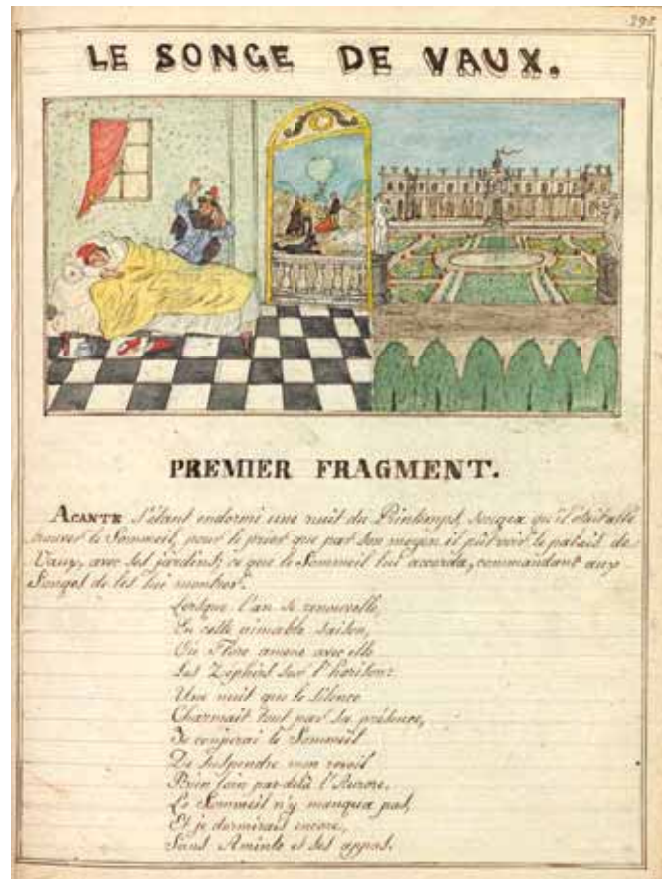 398
LE SONGE DE VAUX.
PREMIER FRAGMENT.
ACANTE s'étant endormi une nuit du Printemps, songea qu'il était allé
trouver le Sommeil, pour le prier que par son moyen il pût voir le palais de
Vaux, avec ses jardins; ce que le Sommeil lui accorda, commandant aux
Songes de les lui montrer.
Lorsque l'an se renouvelle,
En cette aimable saison,
Où Flore amène avec elle
Les Zéphirs sur l'horison:
Une nuit que le silence
Charmait tout par sa présence,
Je conjurai le Sommeil
De suspendre mon réveil
Bien loin par-delà l'Aurore.
Le Sommeil n'y manqua pas,
Et je dormirais encore,
Sans Aminte et ses appas.